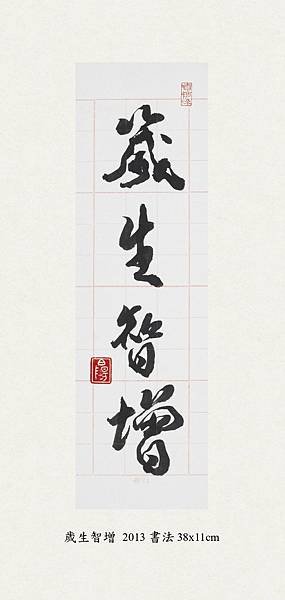 歲
生
智
增
歲生智增 2013 書法 38x11cm